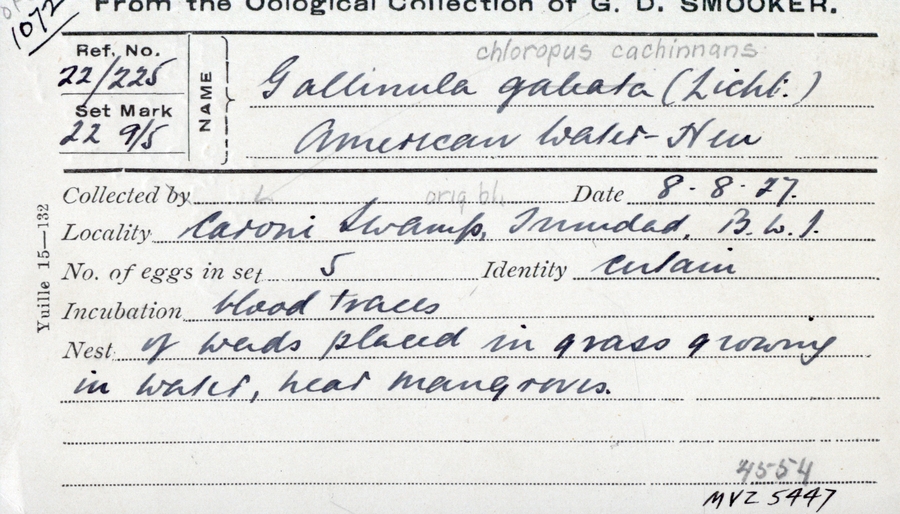 1072
From the Oological Collection of G. D. SMOOKER.
chloropus cachinnans
Ref. No.
22/225
NAME
Gallinula galeata (Licht.)
Set Mark
22 9/5
American Water-Hen
Collected by orig bl. Date 8-8-27.
Locality Caroni Swamp, Trinidad, B.W.I.
No. of eggs in set 5 Identity certain
Incubation blood traces
Nest of weeds placed in grass growing
in water, near mangroves.
Yuille 15—132
4554
MVZ 5447